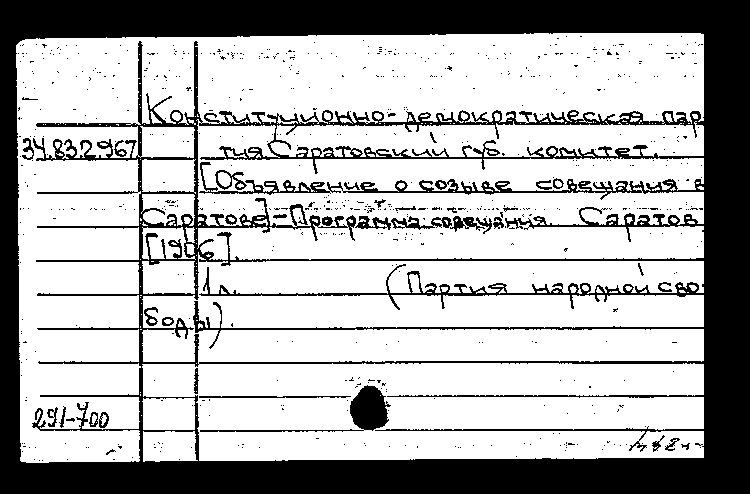 Конституционно-демократическая пар
34.83.2.967 тия. Саратовский губ. комитет.
[Объявление о созыве совещания в
Саратове].- Программа совещания. Саратов
[1906].
1 л. (Партия народной сво-
боды).
291-700